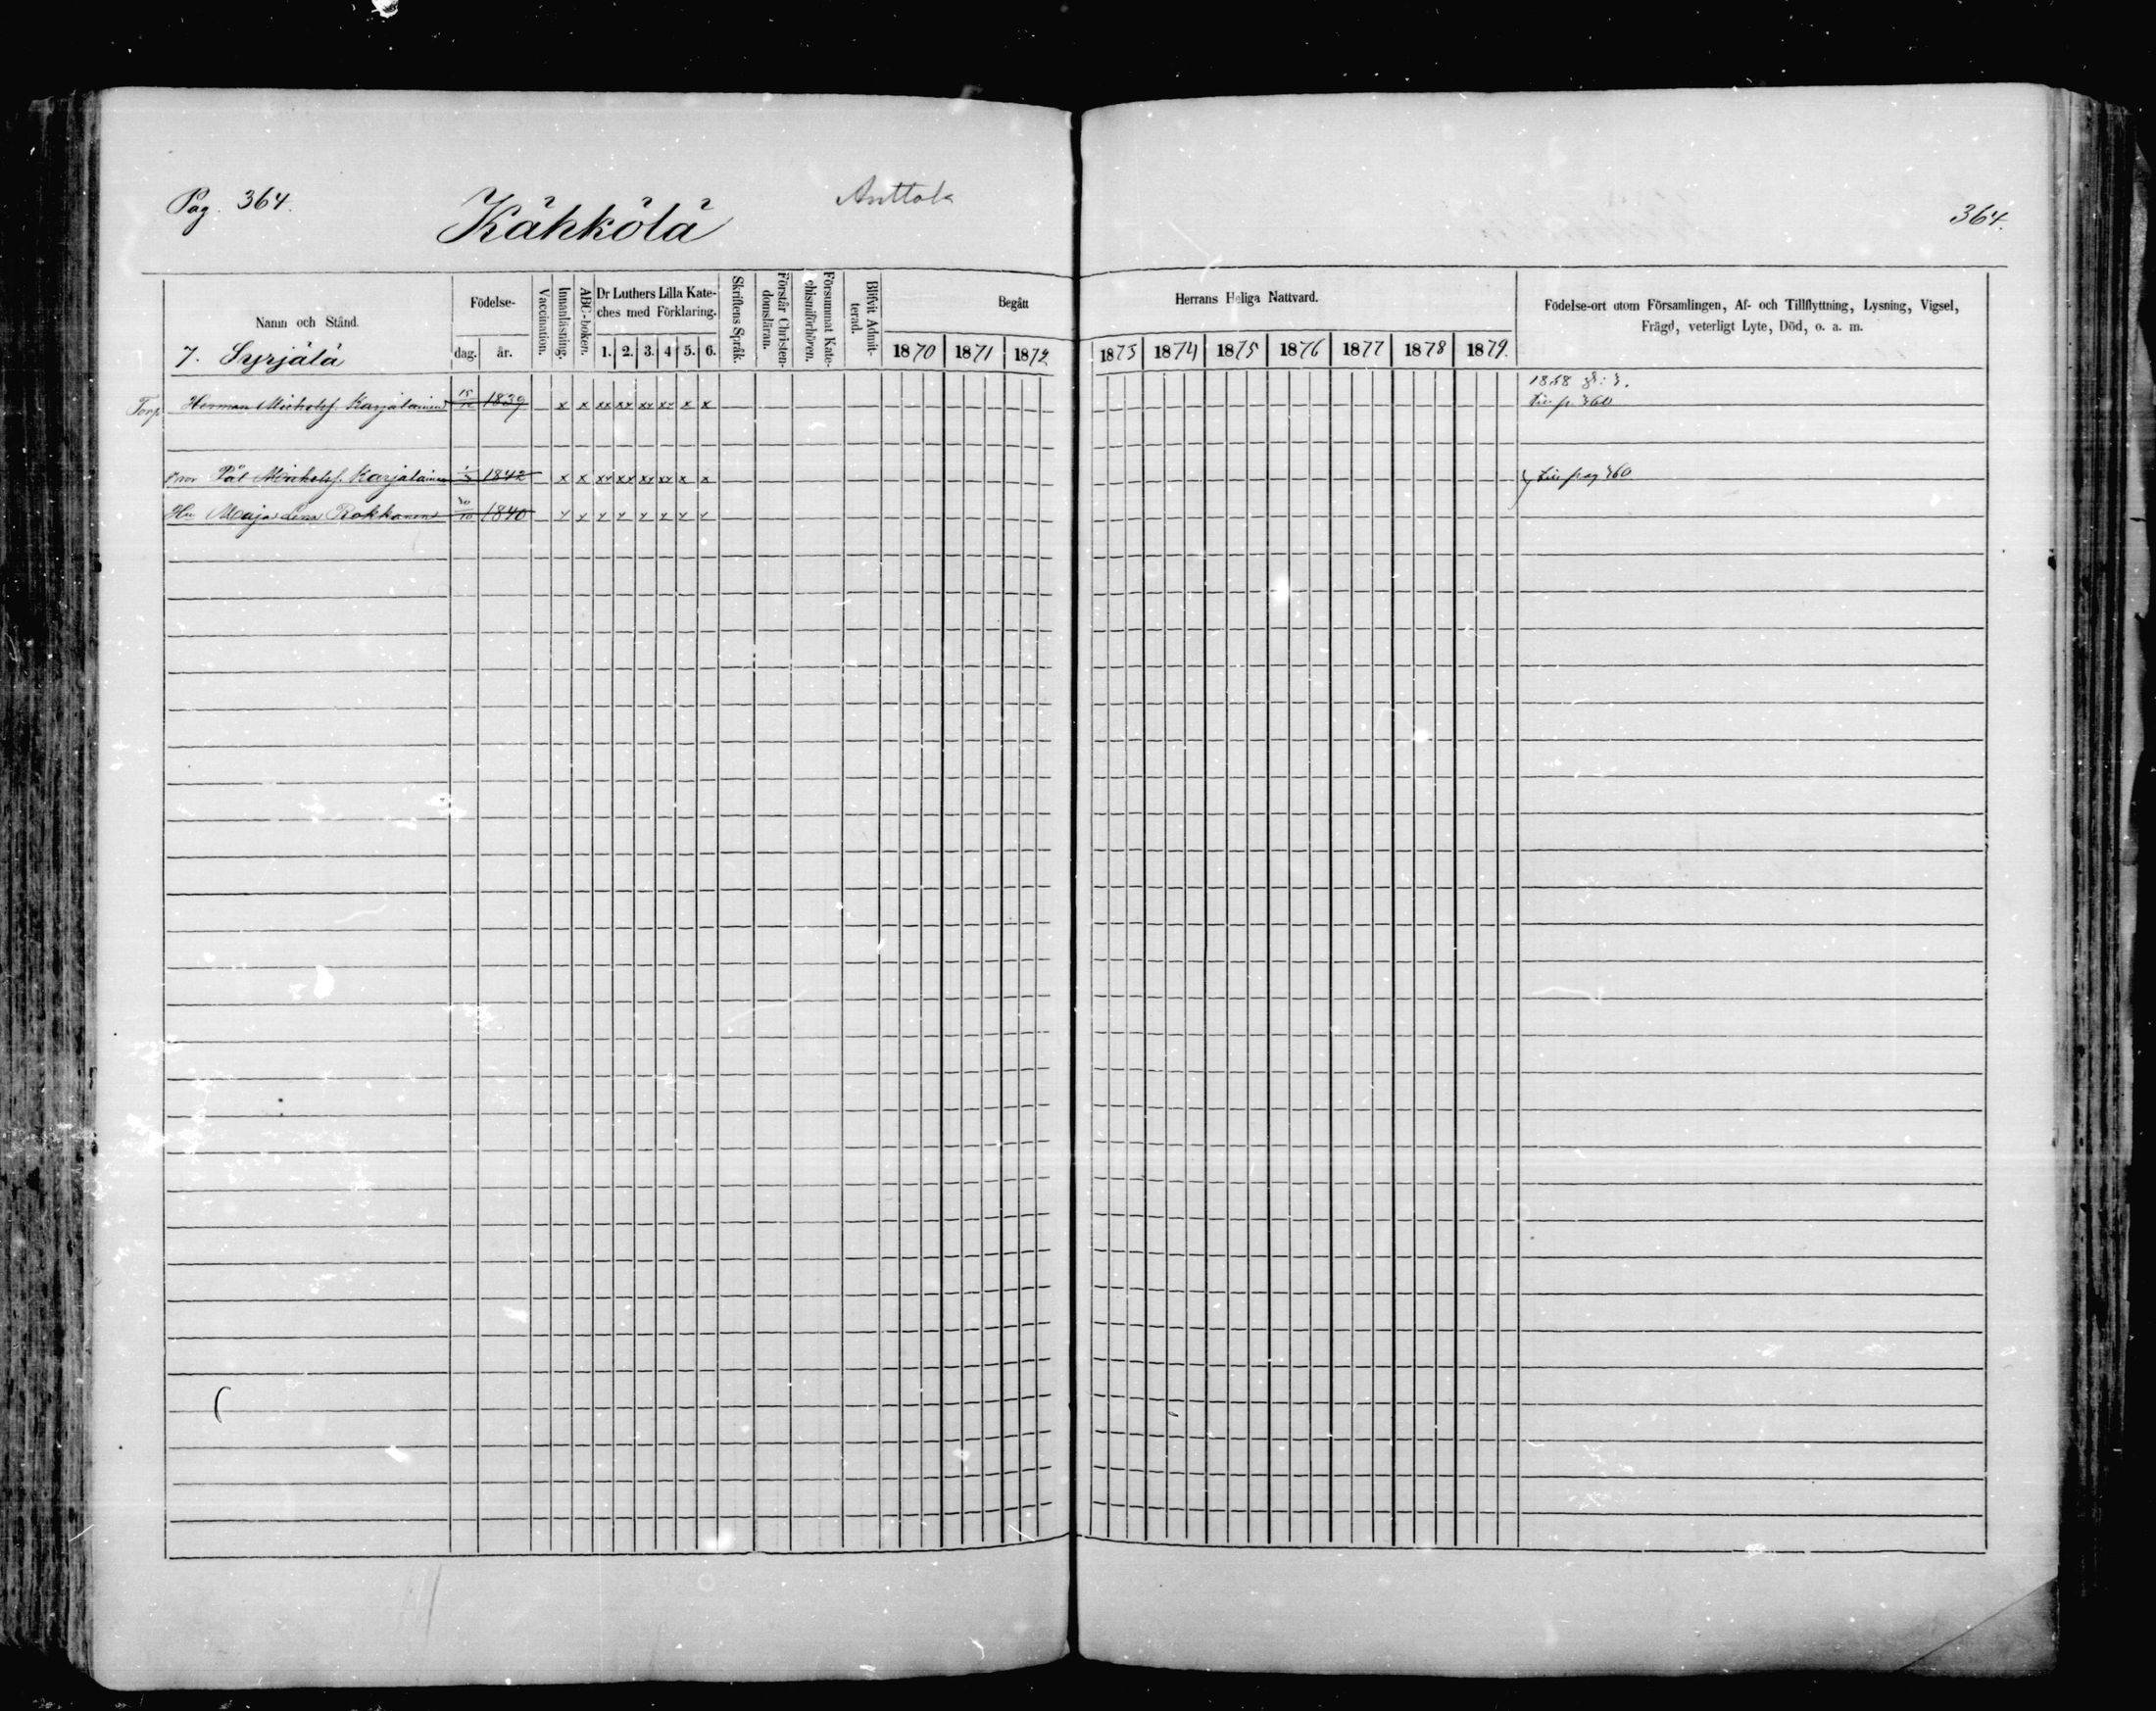 Pag. 364.
Kähkölä
Anttola
364.
Namn och Stånd.
Födelse-
dag.
år.
Vaccination.
Innanläsning.
ABC-boken.
Dr Luthers Lilla Kate-
ches med Förklaring.
1. 2. 3. 4 5. 6.
Skriftens Språk.
Förstår Christen-
domsläran.
Försummat Kate-
chismiförhören.
Blifvit Admit-
terad.
Begått
Herrans Heliga Nattvard.
1870 1871 1872
1873 1874 1875 1876 1877 1878 1879.
Födelse-ort utom Församlingen, Af- och Tillflyttning, Lysning, Vigsel,
Frägd, veterligt Lyte, Död, o. a. m.
7. Syrjälä
Torp. Herman Michelsf. Karjalainen 1839 x x xx xx xx xx x x
1858
360
Pål Michelsf. Karjalainen 1842 x x xx xx xx xx x x
pag 360
Hu Maja Lena Rokkanen 1840